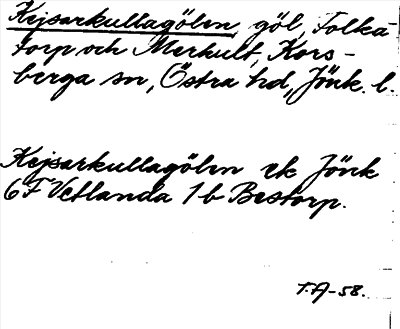 Kejsarkullagölen, göl, Folka-
torp och Merkult, Kors-
berga sn, Östra hd, Jönk. l.
Kejsarkullagölen ek Jönk
6F Vetlanda 1b Bestorp.
T.A-58.